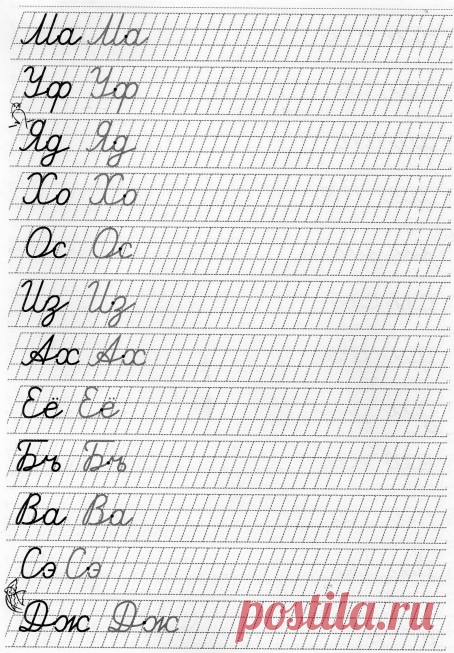 Ма Ма
Уф Уф
Яд Яд
Хо Хо
Ос Ос
Из Из
Ах Ах
Её Её
Бъ Бъ
Ва Ва
Сэ Сэ
Дж Дж
postila.ru